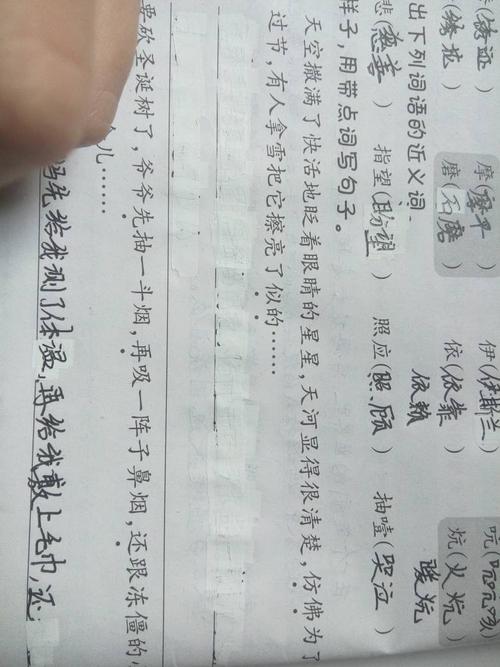 摩(摩平) 伊(伊斯兰) 吭
磨(石磨) 依(依靠) 炕(火炕)
依赖
出下列词语的近义词。
悲(慈善) 指望(盼望) 照应(照顾) 抽噎(哭泣)
样子,用带点词写句子。
天空撒满了快活地眨着眼睛的星星,天河显得很清楚,仿佛为了
过节,有人拿雪把它擦亮了似的……
要砍圣诞树了,爷爷先抽一斗烟,再吸一阵子鼻烟,还跟冻僵的
儿……
妈先给我测了体温,再给我敷上毛巾,还